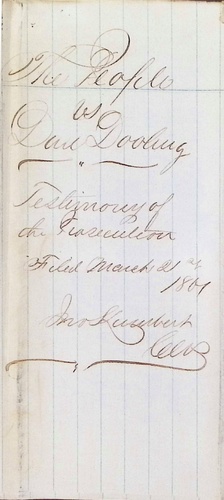 The People
vs
Dan Dooling
Testimony of
the Prosecution
Filed March 21st
Jno
Clk